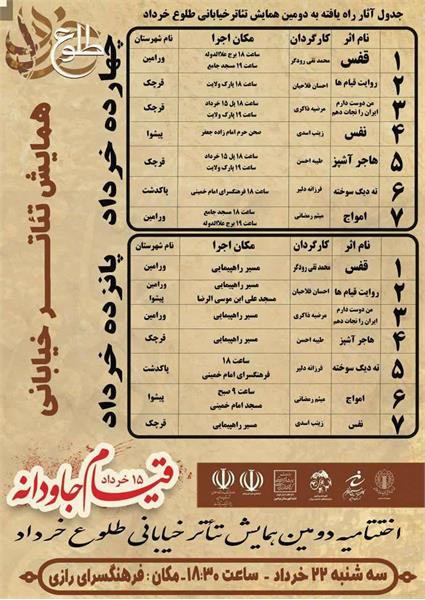 جدول آثار راه یافته به دومین همایش تئاترخیابانی طلوع خرداد
طلوع
همایش تئاتر خیابانی
چهارده خرداد
نام اثر کارگردان مکان اجرا نام شهرستان
۱ قفس محمد تقی رودگر ساعت ۱۸ برج علاالدوله ورامین
ساعت ۱۹ مسجد جامع
۲ روایت قیام ها احسان فلاحیان ساعت ۱۸ پارک ولایت قرچک
۳ من دوست دارم مرضیه ذاکری ساعت ۱۸ پل ۱۵ خرداد قرچک
ایران را نجات دهم ساعت ۱۹ پارک ولایت
۴ نفس زینب اسدی صحن حرم امام زاده جعفر پیشوا
۵ هاجر آشپز طیبه احسن ساعت ۱۸ پل ۱۵ خرداد قرچک
ساعت ۱۹ پارک ولایت
۶ ته دیگ سوخته فرزانه دلیر ساعت ۱۸ فرهنگسرای امام خمینی پاکدشت
۷ امواج میثم رمضانی ساعت ۱۸ مسجد جامع ورامین
ساعت ۱۹ برج علاالدوله
پانزده خرداد
نام اثر کارگردان مکان اجرا نام شهرستان
۱ قفس محمد تقی رودگر مسیر راهپیمایی ورامین
۲ روایت قیام ها احسان فلاحیان مسیر راهپیمایی ورامین
مسجد علی ابن موسی الرضا پیشوا
۳ من دوست دارم مرضیه ذاکری مسیر راهپیمایی ورامین
ایران را نجات دهم
۴ هاجر آشپز طیبه احسن مسیر راهپیمایی قرچک
۵ ته دیگ سوخته فرزانه دلیر ساعت ۱۸ پاکدشت
فرهنگسرای امام خمینی
۶ امواج میثم رمضانی ساعت ۹ صبح پیشوا
مسجد امام خمینی
۷ نفس زینب اسدی مسیر راهپیمایی قرچک
قیام جاودانه
۱۵ خرداد
اختتامیه دومین همایش تئاتر خیابانی طلوع خرداد
سه شنبه ۲۲ خرداد - ساعت ۱۸:۳۰ - مکان : فرهنگسرای رازی